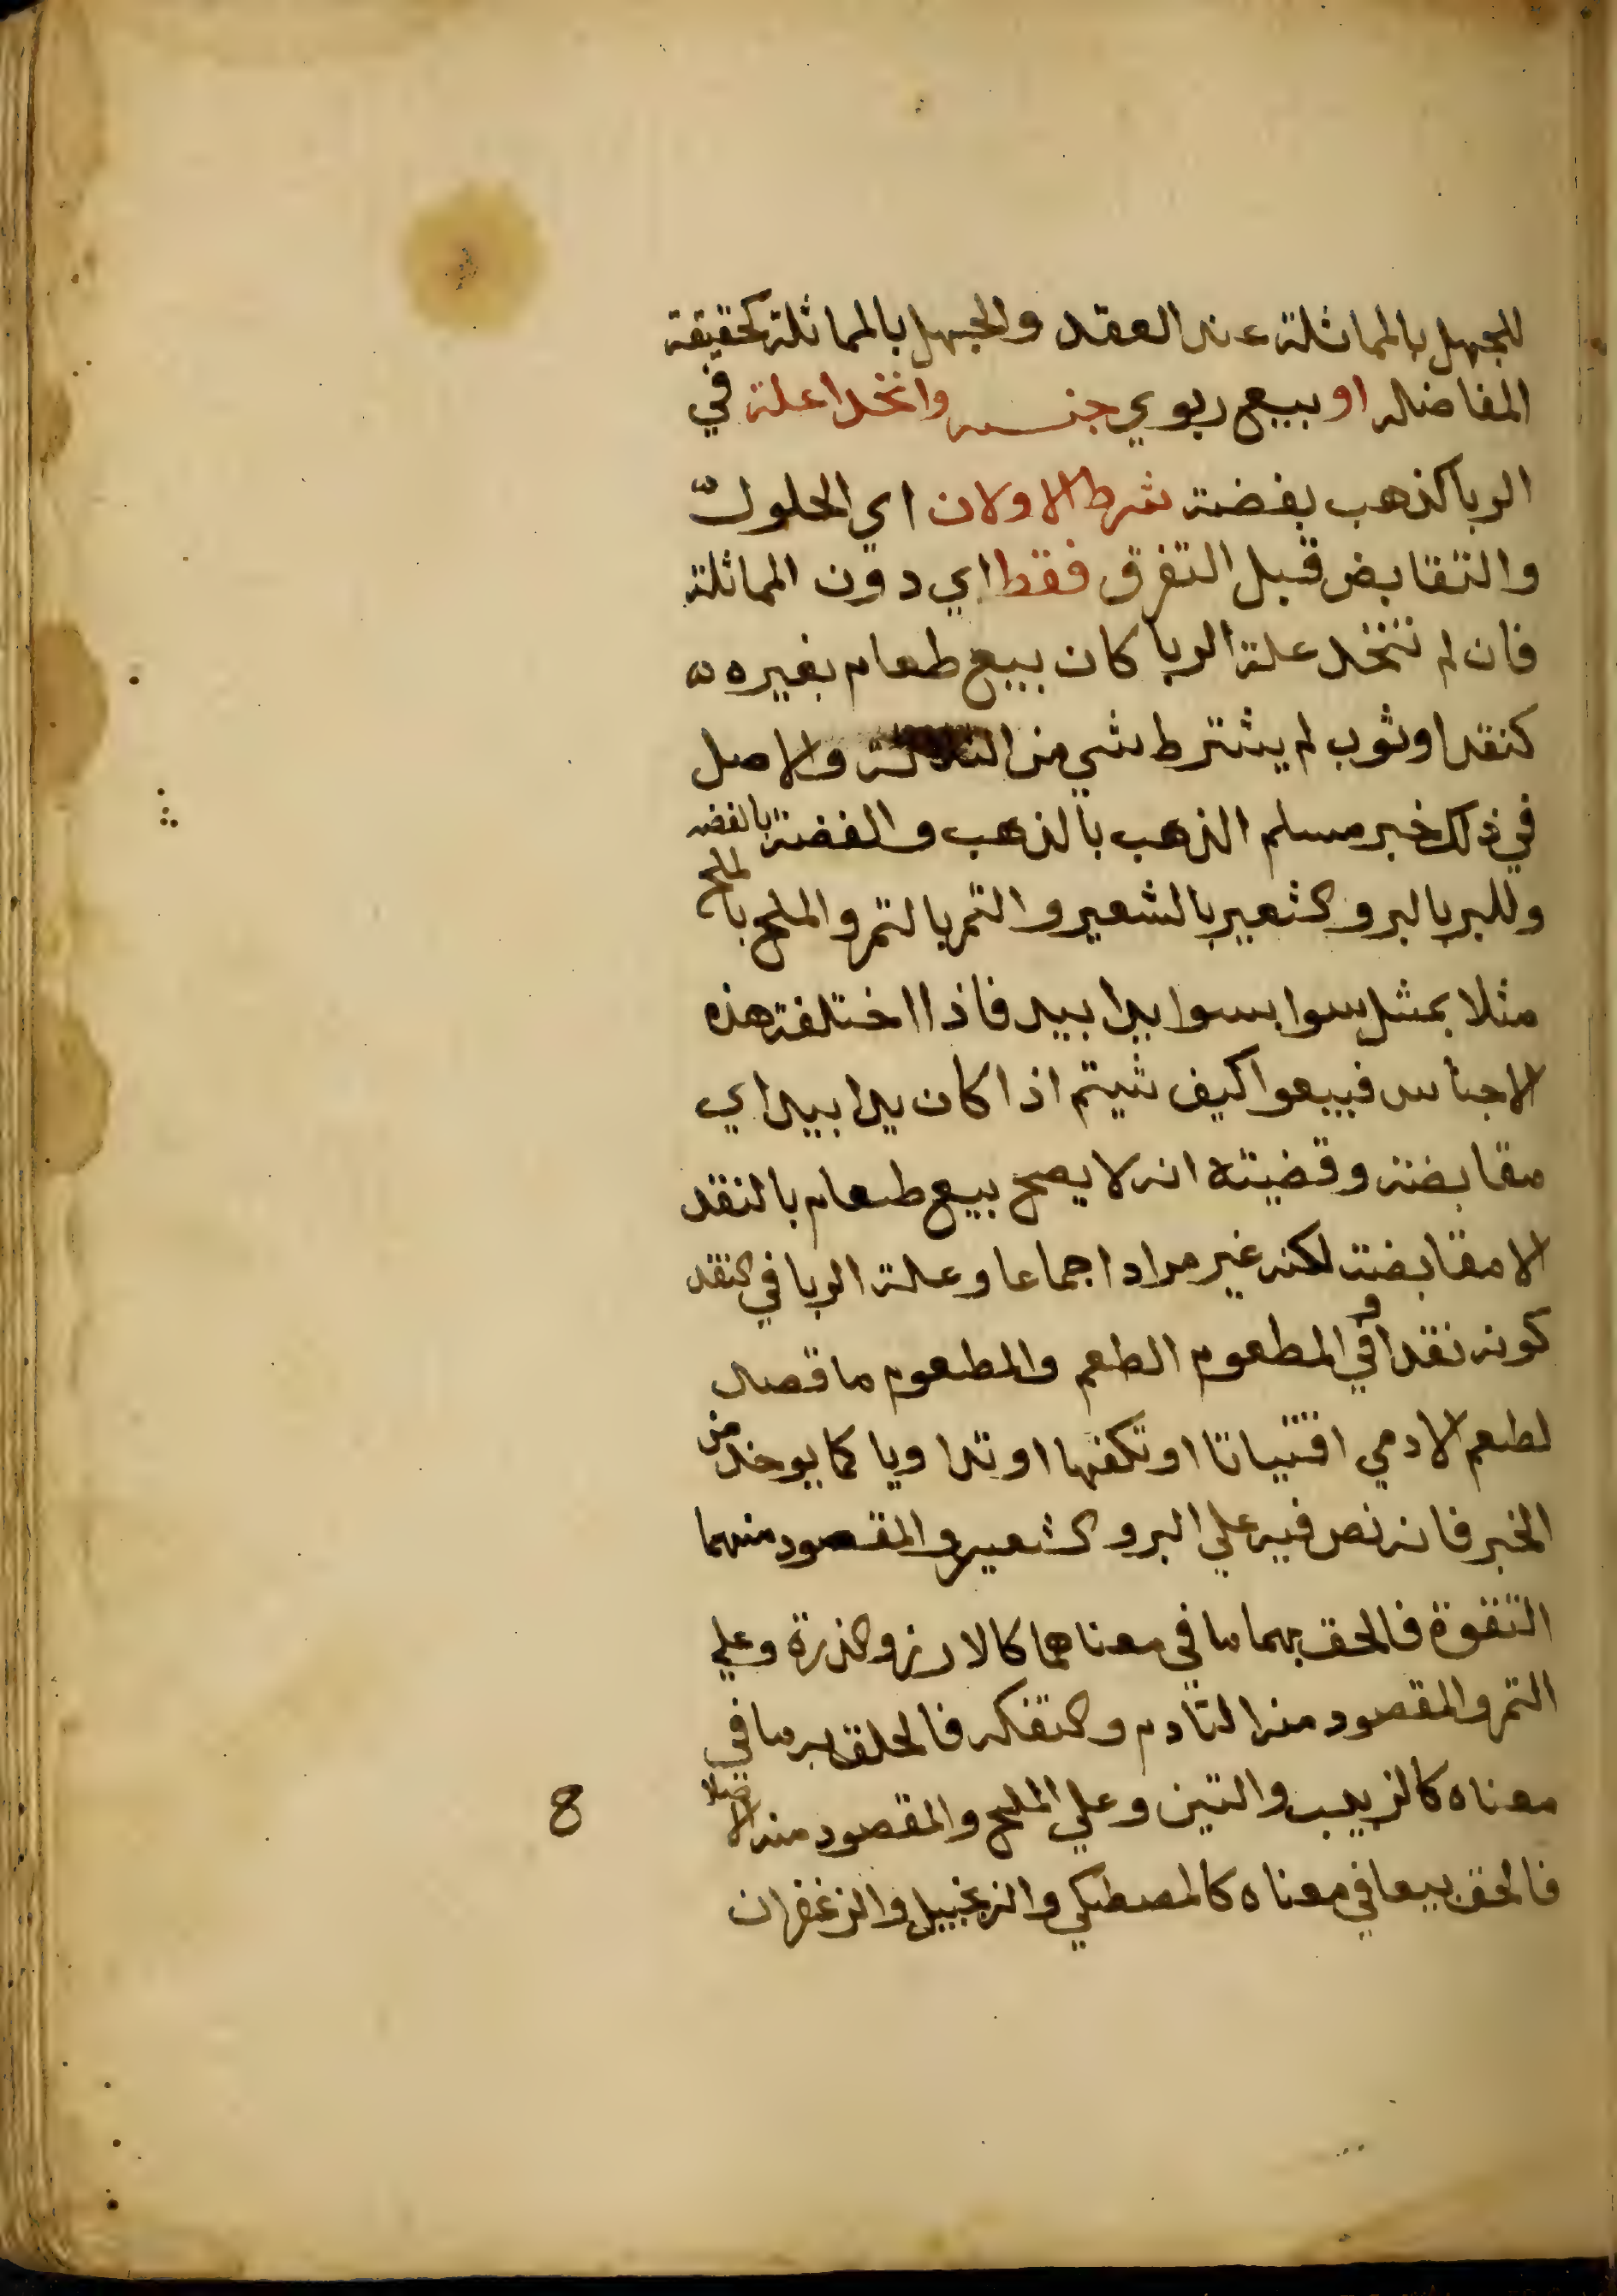 للجهل بالمماثلة عند العقد والجهل بالمماثلة كحقيقة
المفاضله او ببيع ربوي جنسه واتخدا علة في
الربا كذهب بفضة شرط الاولان اي الحلول
والتقابض قبل التفرق فقط اي دون المماثلة
فان لم تتخد علة الربا كان ببيع طعام بغيره
كنقد او ثوب لم يشترط شي من الثلاثة والاصل
في ذلك خبر مسلم الذهب بالذهب والفضة بالفضه
وللبر بالبر والشعير بالشعير والتمر بالتمر والملح بالملح
مثلا بمثل سوا بسوا يدا بيد فاذا اختلفة هذه
الاجناس فبيعوا كيف شيتم اذا كان يدا بيد اي
مقابضة وقضيته انه لا يصح بيع طعام بالنقد
الا مقابضة لكنه غير مراد اجماعا وعلة الربا في النقد
كونه نقدا وفي المطعوم الطعم والمطعوم ما قصد
لطعم الادمي اقتياتا او تكفها او تداويا كما يوخذ من
الخبر فانه نص فيه علي البر والشعير والمقصود منهما
التقوة فالحق بهما ما في معناهما كالارز والذرة وعلي
التمر والمقصود منه التادم والتفكه فالحلق به ما في
معناه كالزبيب والتين وعلي الملح والمقصود منه
فالحق بيما في معناه كالمصطكي والزنجبيل والزغفران